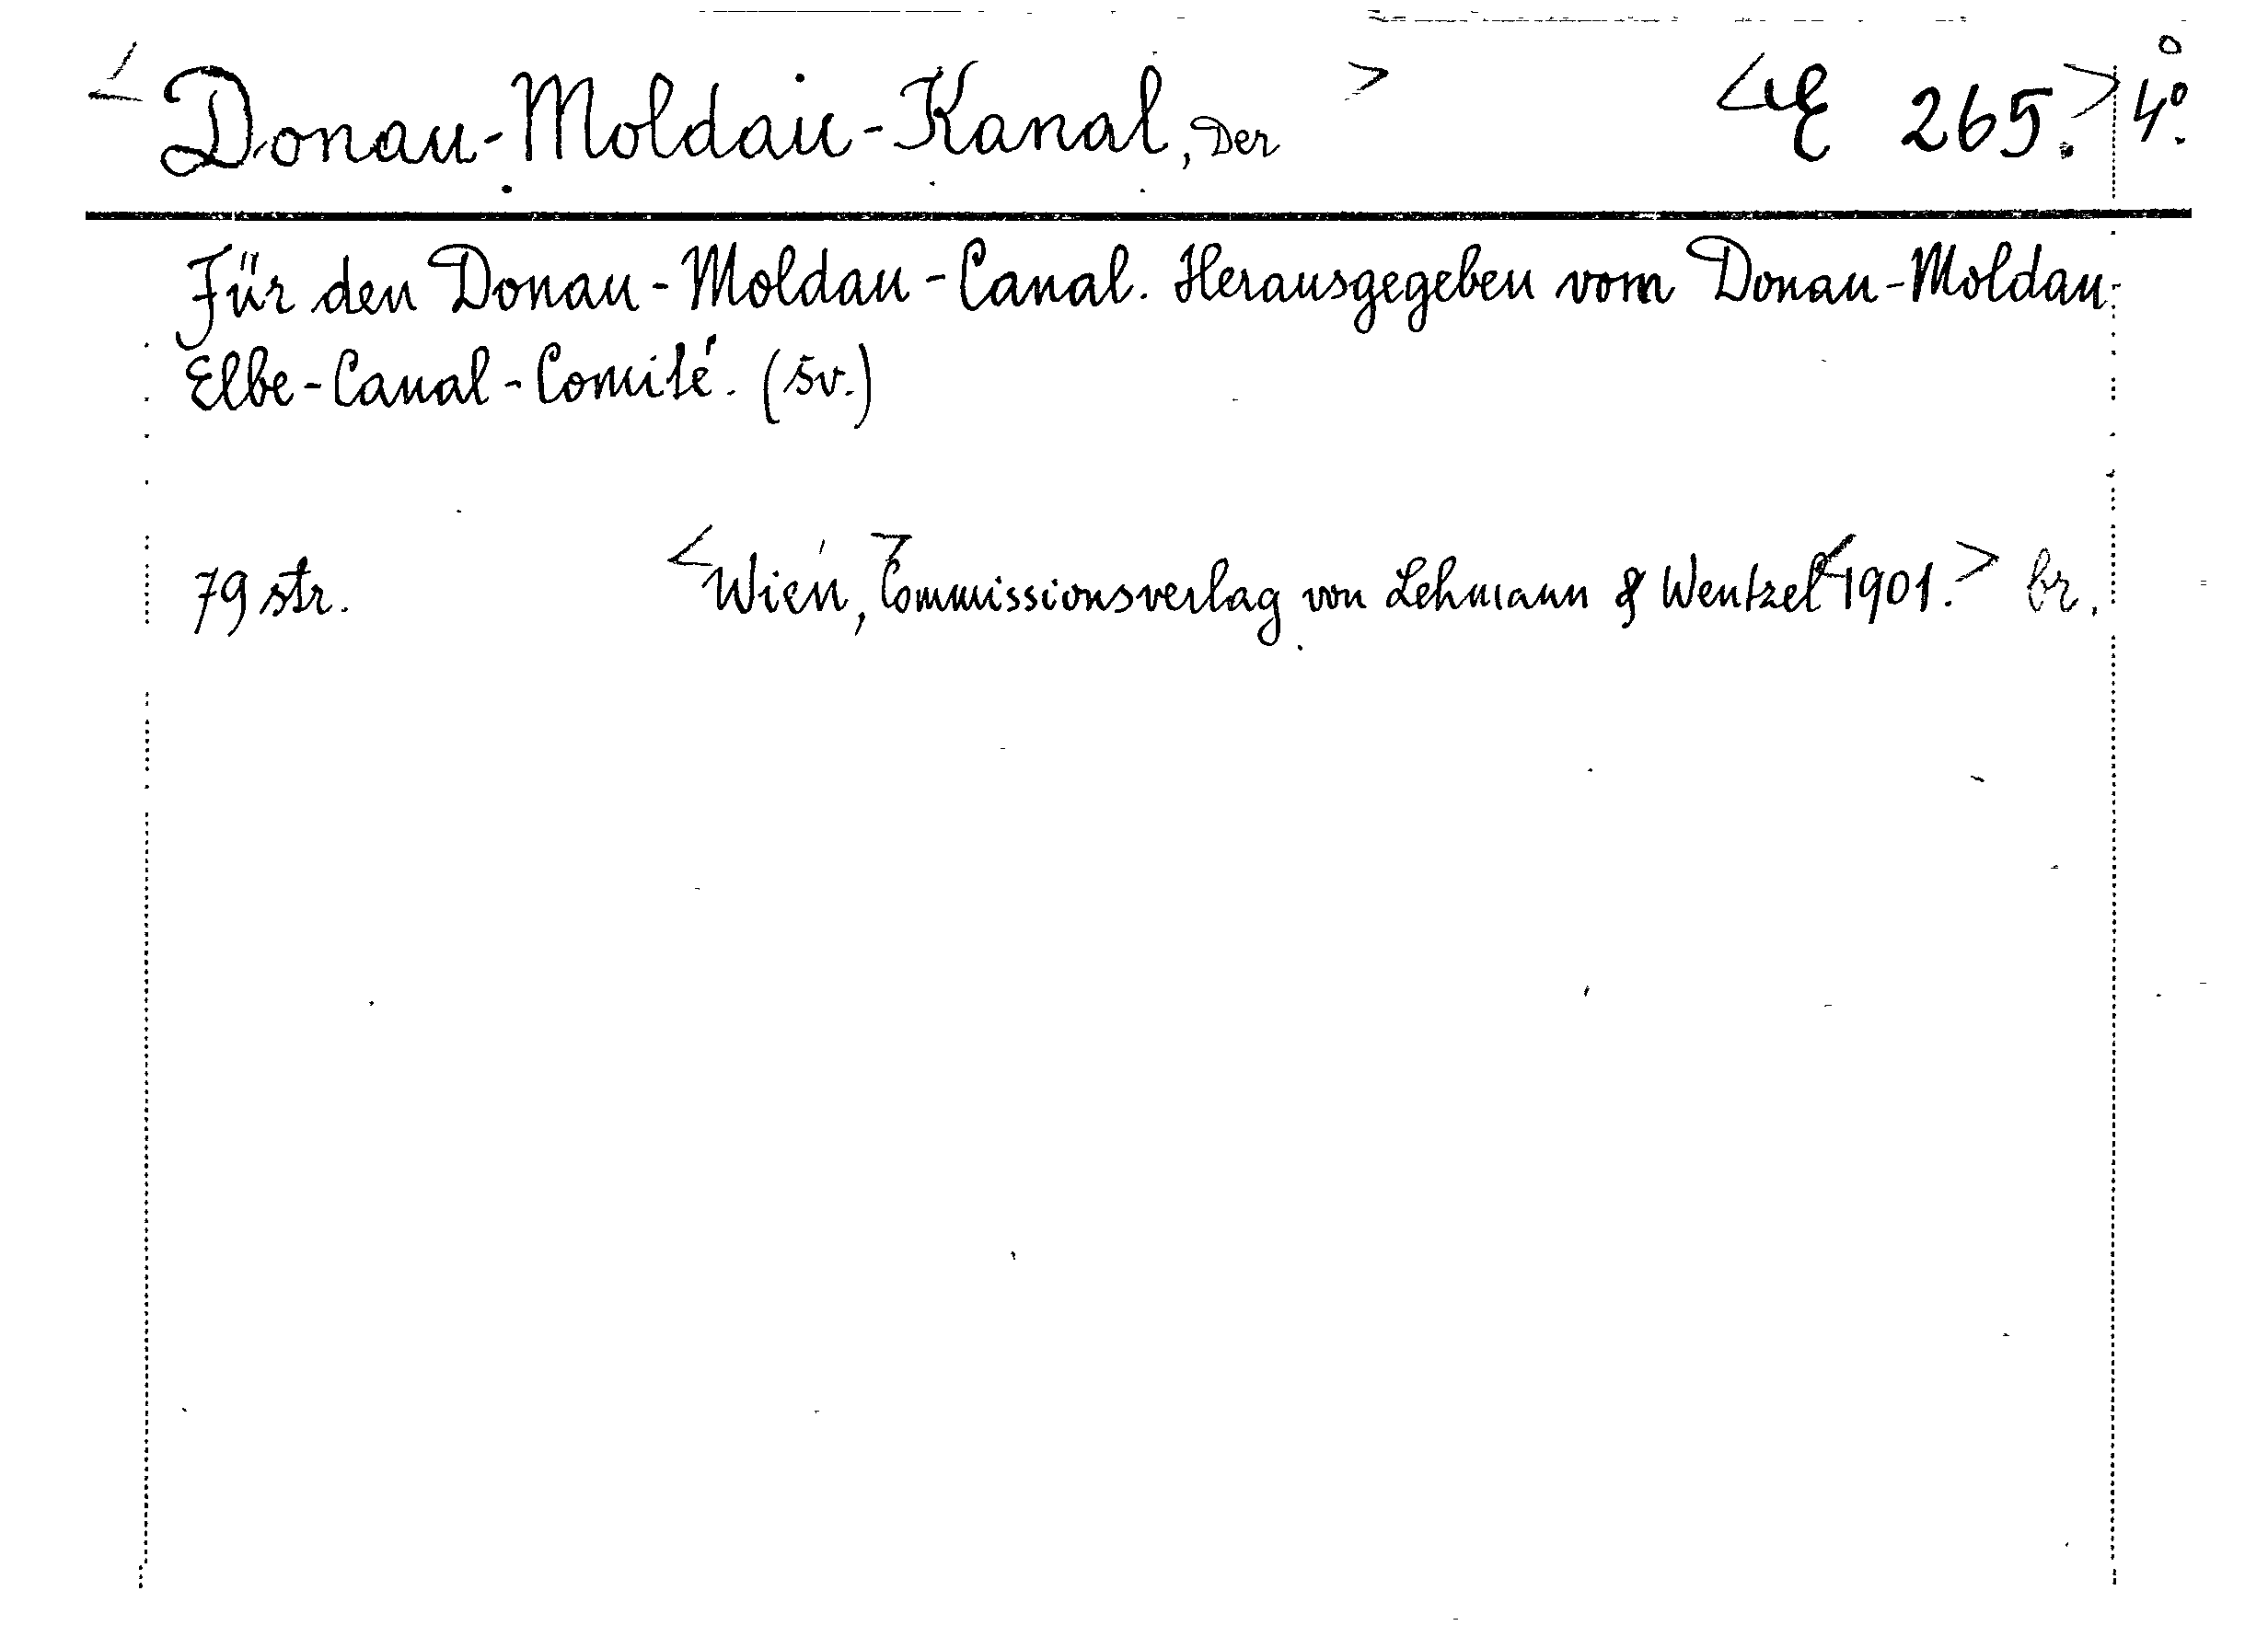 <Donau-Moldau-Kanal, Der> <E 265.> 4º.
Für den Donau-Moldau-Canal. Herausgegeben vom Donau-Moldau-
Elbe-Canal-Comité. (sv.)
79 str. <Wien, Commissionsverlag von Lehmann & Wentzel <1901.> br.